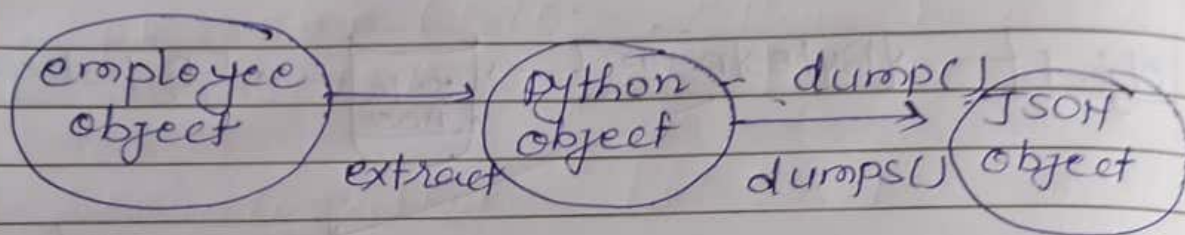 employee
object
extract
python
object
dump()
dumps()
JSON
object